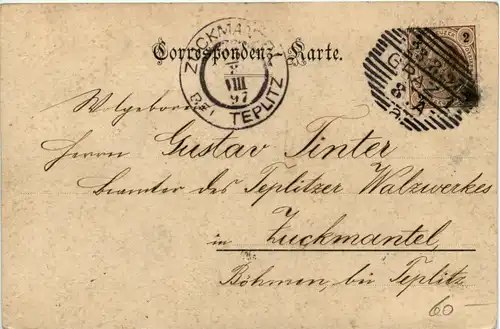 Correspondenz-Karte.
ZUCKMANTEL
8
VIII
97
BEI TEPLITZ
2
GRAZ
8 A
Wolgeboren
Herrn Gustav Tinter
Beamter des Teplitzer Walzwerkes
in Zuckmantel,
Böhmen, bei Teplitz
60-